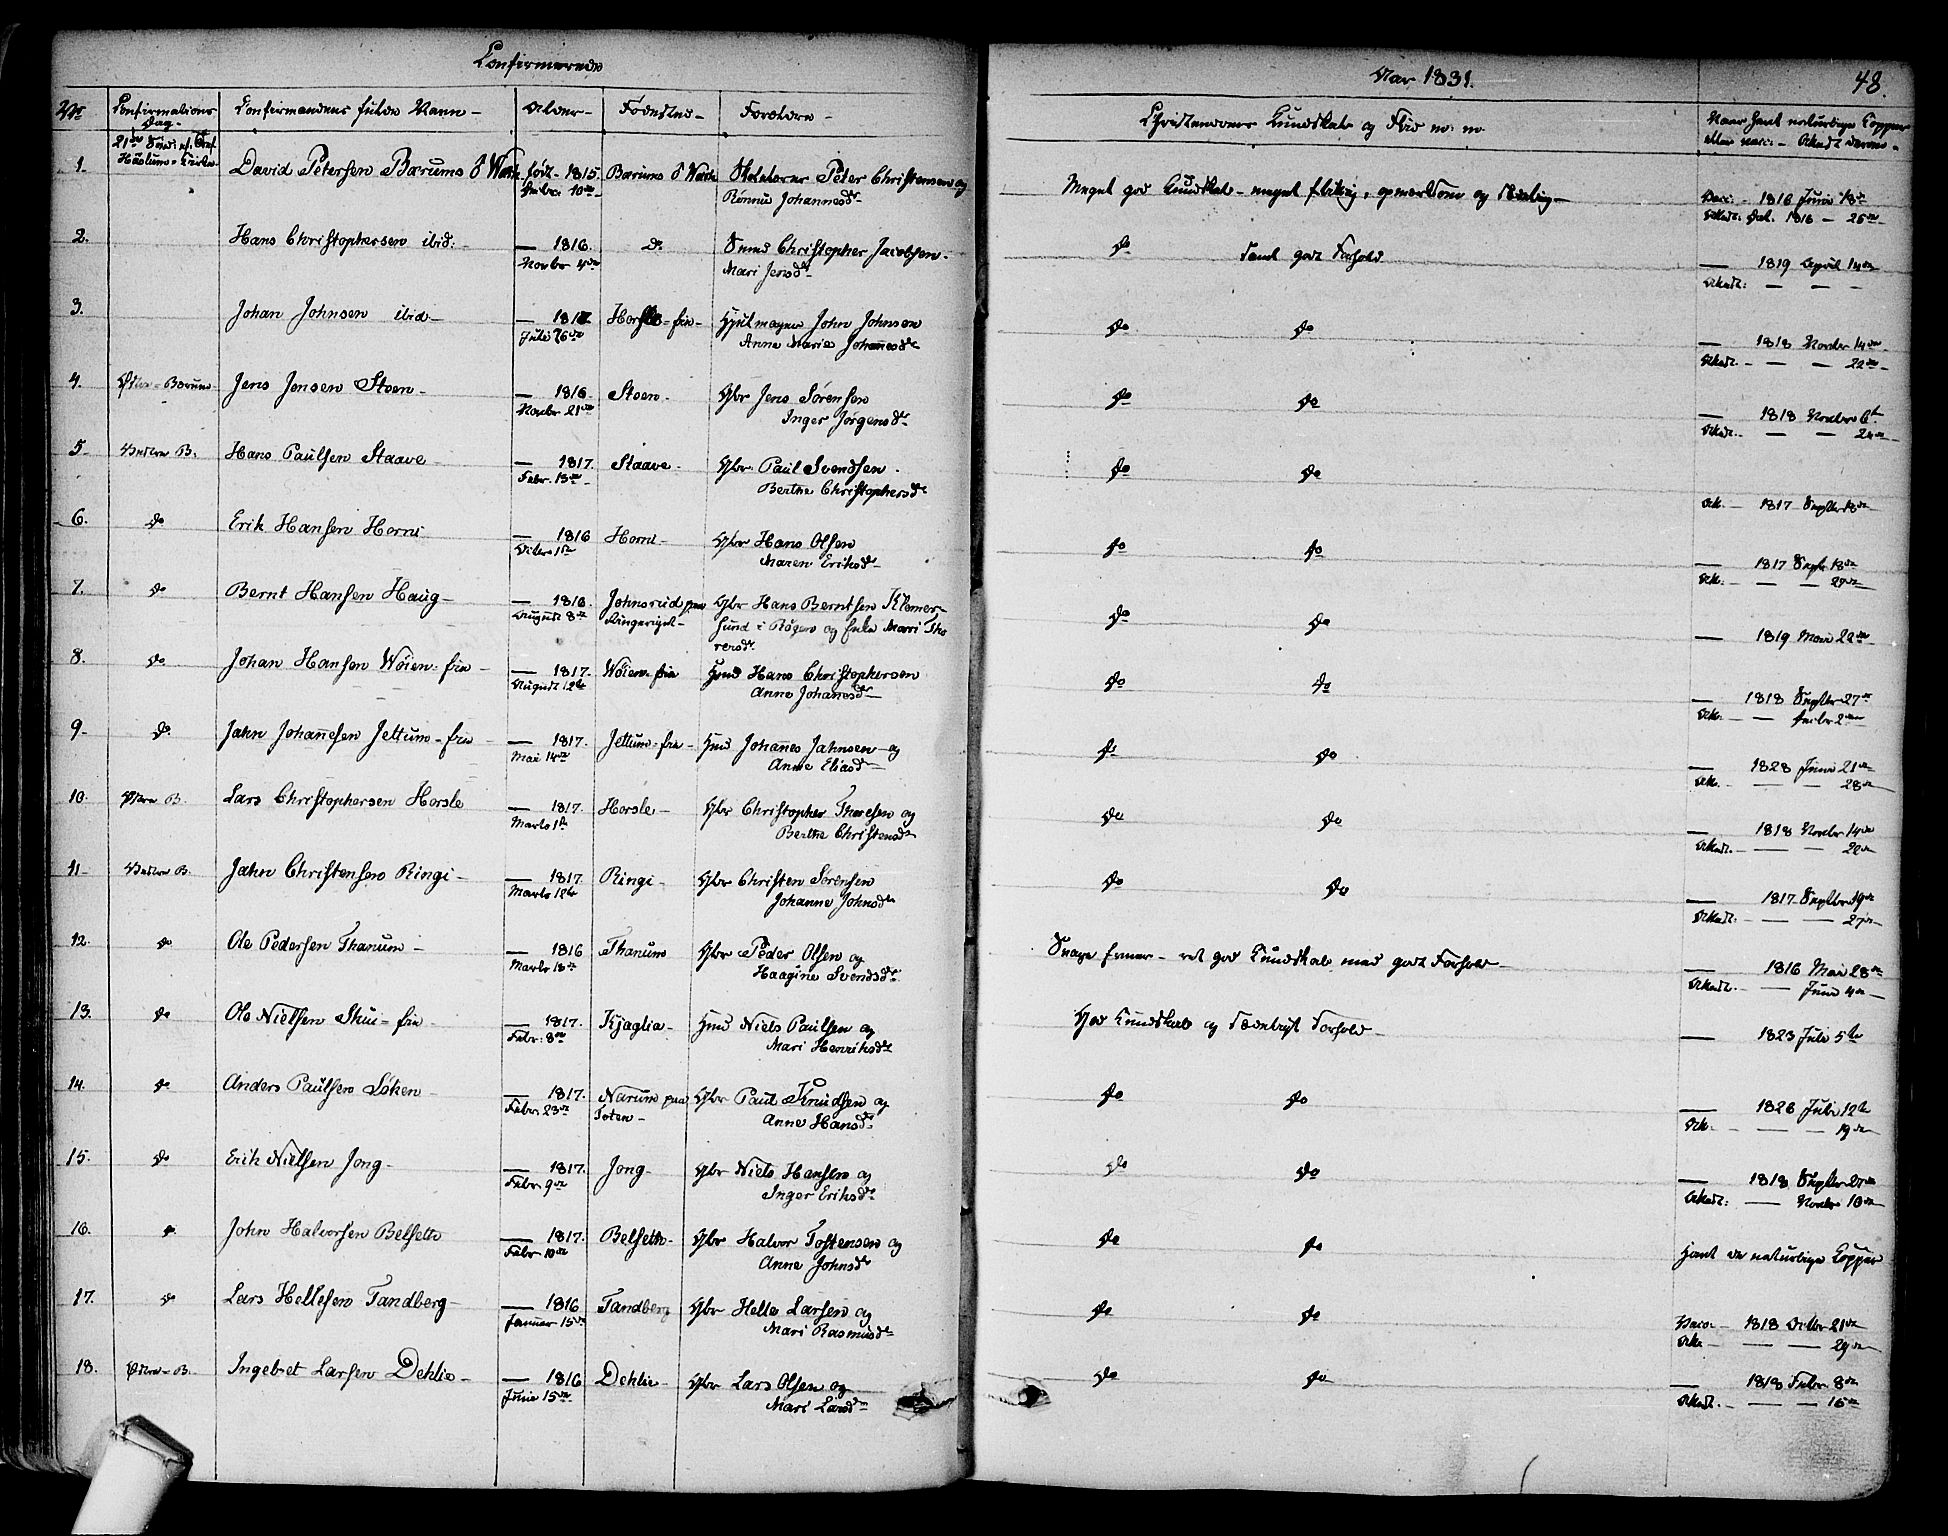 Confirmerede
Aar 1831.
48.
No
Confirmations Dag
Confirmandens fulde Navn
Alder
Fødested
Forældre
Christendoms Kundskab og Flid m: m:
Naar havt naturlige Kopper
eller vacc: - Attest derom
21de Sønd: ef: Tref
Haslums Kirke
1. David Petersen Bærums Værk født 1815. Decbr. 10de Bærums Værk Peter Christensen og
Rønnu Johannesdr
Meget god Kundskab - meget flittig, opmærksom og sædelig
Vacc: 1816 Juni 18de
Attest: Dat. 1816 - 25de
2. Hans Christophersen ibid. 1816. Novbr 4de do Smed Christopher Jacobsen
Mari Jensdr
do samt godt Forhold
1819 April 14de
Attest:
3. Johan Johnsen ibid 1817. Juli 26de Horsle-eie Hjulmager John Johnsen
Anne Marie Johannesdr
do do
1818 Novbr 14de
Attest 22de
4. Østre Bærum Jens Jensen Steen 1816. Novbr 21de Steen Gbr Jens Sörensen
Inger Jørgensdr
do do
1818 Novbr 6te
Attest: 24de
5. Vestre B. Hans Paulsen Staave 1817. Febr. 13de Staave Gbr. Paul Svendsen
Berthe Christophersdr
do do
Att. 1817 Septbr 18de
6. do Erik Hansen Horni 1816 Octbr 1ste Horni Gbr Hans Olsen
Maren Eriksdr
do do
1817 Septbr 18de
Att.
7. do Bernt Hansen Haug 1816. August 8de Johnsrud paa Ringeriget Gbr Hans Berntsen Klemer-
sund i Røgen og Enke Marri Tho
resdr
do do
1819 Mai 22de
8. do Johan Hansen Wøien-eie 1817. August 12te Wøien-eie Hmd Hans Christophersen
Anne Johanesdr
do do
1818 Septbr 27de
Att. Octbr 2den
9. do Jahn Johanesen Jettum-eie 1817. Mai 14de Jettum-eie Hmd Johanes Jahnsen og
Anne Eliasdr
do do
1828 Juni 21de
Att. 28de
10. Østre B. Lars Christophersen Horsle 1817. Marts 1ste Horsle Gbr Christopher Thoresen og
Berthe Christensdr
do do
1818 Novbr 14de
Attest. 22de
11. Vestre B. Jahn Christensen Ringi 1817. Marts 12te Ringi Gbr Christen Sørensen
Johanne Johnsdr
do do
1817 Septbr 19de
Attest: 27de
12. do Ole Pedersen Thanum 1816 Marts 18de Thanum Gbr Peder Olsen og
Haagine Svendsdr
Svage Evner - ret god Kundskab med godt Forhold
1816 Mai 28de
Attest. Juni 4de
13. do Ole Nielsen Skui-eie 1817. Febr: 8de Kjaglie Hmd Niels Paulsen og
Mari Henriksdr
God Kundskab og sædeligt Forhold
1823 Juli 5te
14. do Anders Paulsen Løken 1817. Febr 23de Narum paa Toten Gbr Paul Knudsen og
Anne Hansdr
do do
1826 Juli 12te
Att. 19de
15. do Erik Nielsen Jong 1817. Febr 9de Jong Gbr Niels Hansen og
Inger Eriksdr
do do
1818 Septbr 27de
Attest: Novbr 10de
16. do John Halvorsen Belseth 1817. Febr 10de Belseth Gbr Halvor Tostensen og
Anne Johnsdr
do do
Havt de naturlige Kopper
17. do Lars Hellesen Tandberg 1816 Januar 15de Tandberg Gbr Helle Larsen og
Mari Rasmusdr
do do
Vacc. 1818 Octbr 21de
Att. 29de
18. Østre B. Ingebret Larsen Dehlie 1816 Junie 15de Dehlie Gbr Lars Olsen og
Mari Larsdr
do do
1818 Febr 8de
Attest. 16de